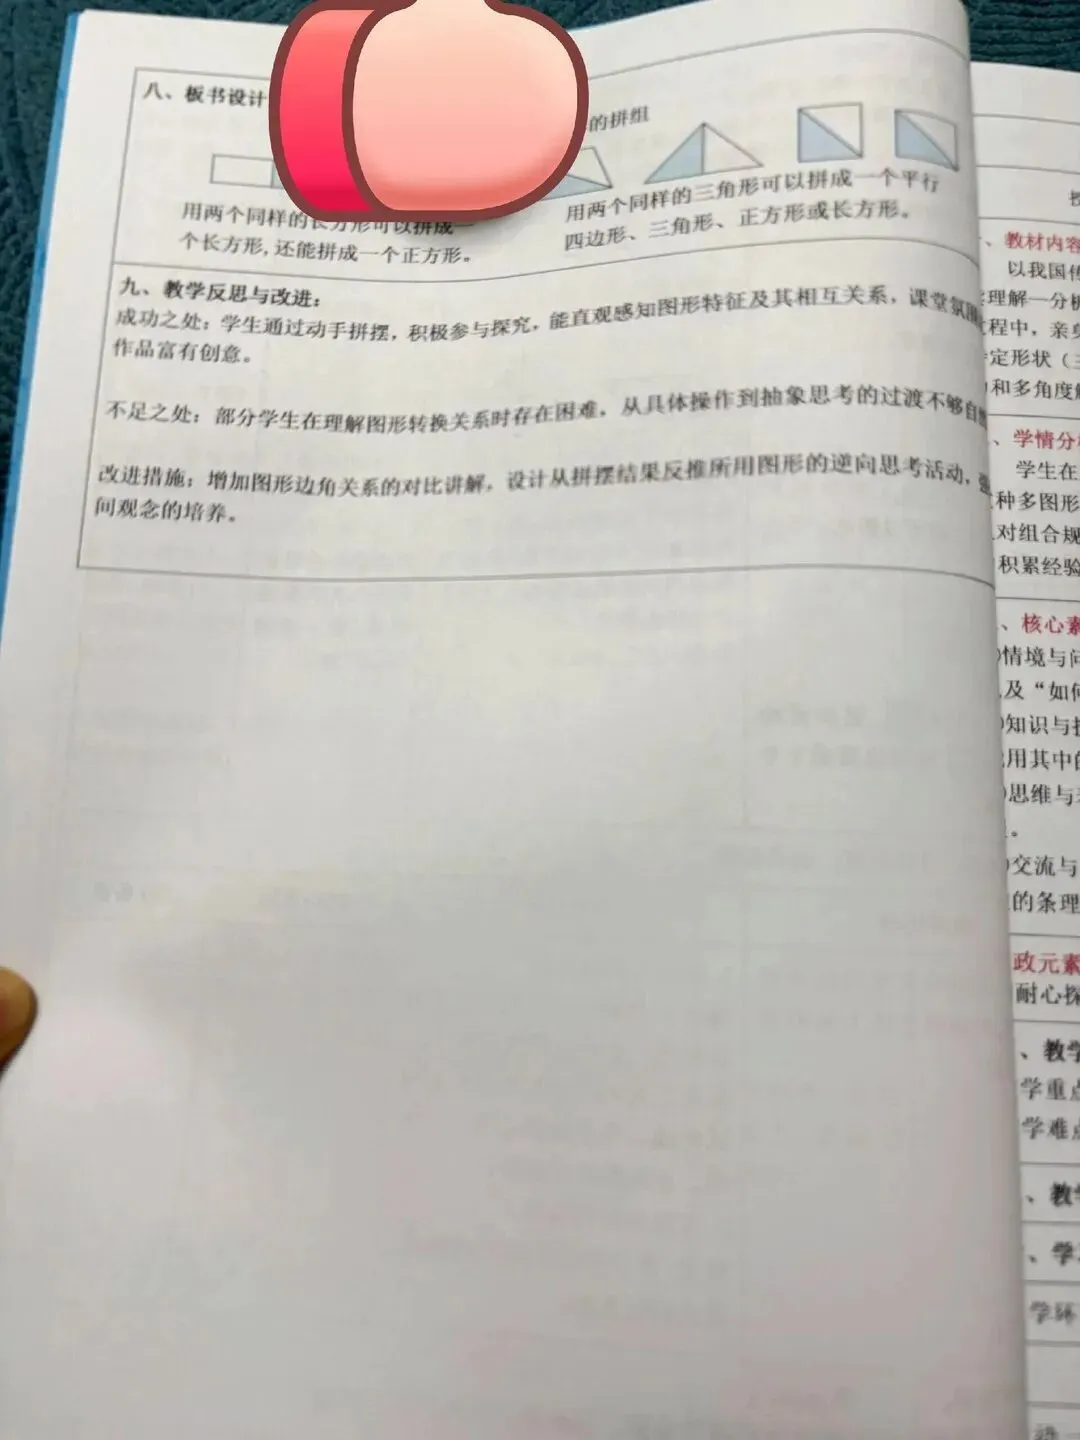 八、板书设计
的拼组
用两个同样的长方形可以拼成一
个长方形,还能拼成一个正方形。
用两个同样的三角形可以拼成一个平行
四边形、三角形、正方形或长方形。
九、教学反思与改进：
成功之处：学生通过动手拼摆，积极参与探究，能直观感知图形特征及其相互关系，课堂氛围
作品富有创意。
不足之处：部分学生在理解图形转换关系时存在困难，从具体操作到抽象思考的过渡不够自
改进措施：增加图形边角关系的对比讲解，设计从拼摆结果反推所用图形的逆向思考活动，
间观念的培养。
、教材内容
以我国传
理解一分析
程中，亲身
定形状（三
和多角度解
、学情分析
学生在
种多图形
对组合规
积累经验
、核心素
情境与问
及“如何
知识与技
用其中的
思维与
。
交流与
的条理
政元素
耐心探
、教学
学重点
学难点
、教学
、学
学环
进一